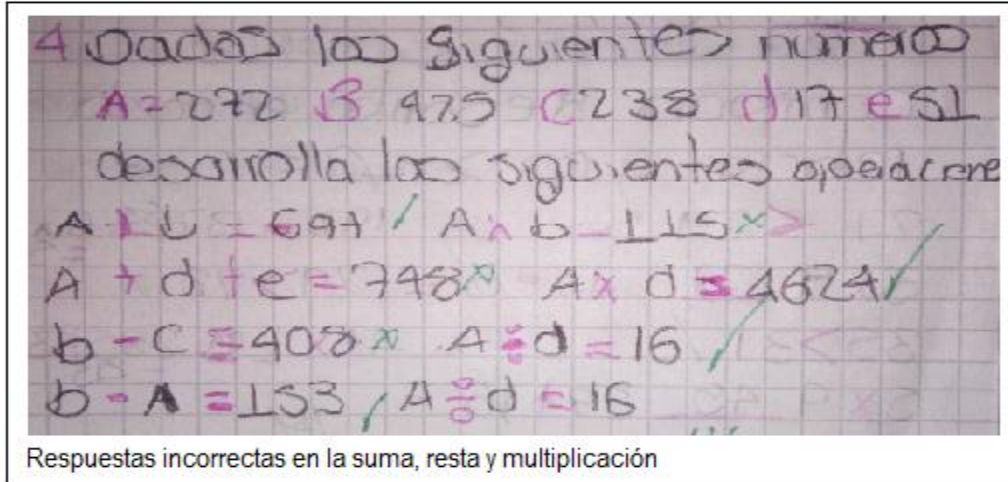 4 Dadas las siguientes numeros
A=272 B 425 C 238 d 17 e 51
desarrolla las siguientes operacione
A + b = 697 / A x b = 115 x
A + d + e = 748 x A x d = 4624 ✓
b - C = 408 x A ÷ d = 16 ✓
b - A = 153 ✓ A ÷ d = 16
Respuestas incorrectas en la suma, resta y multiplicación